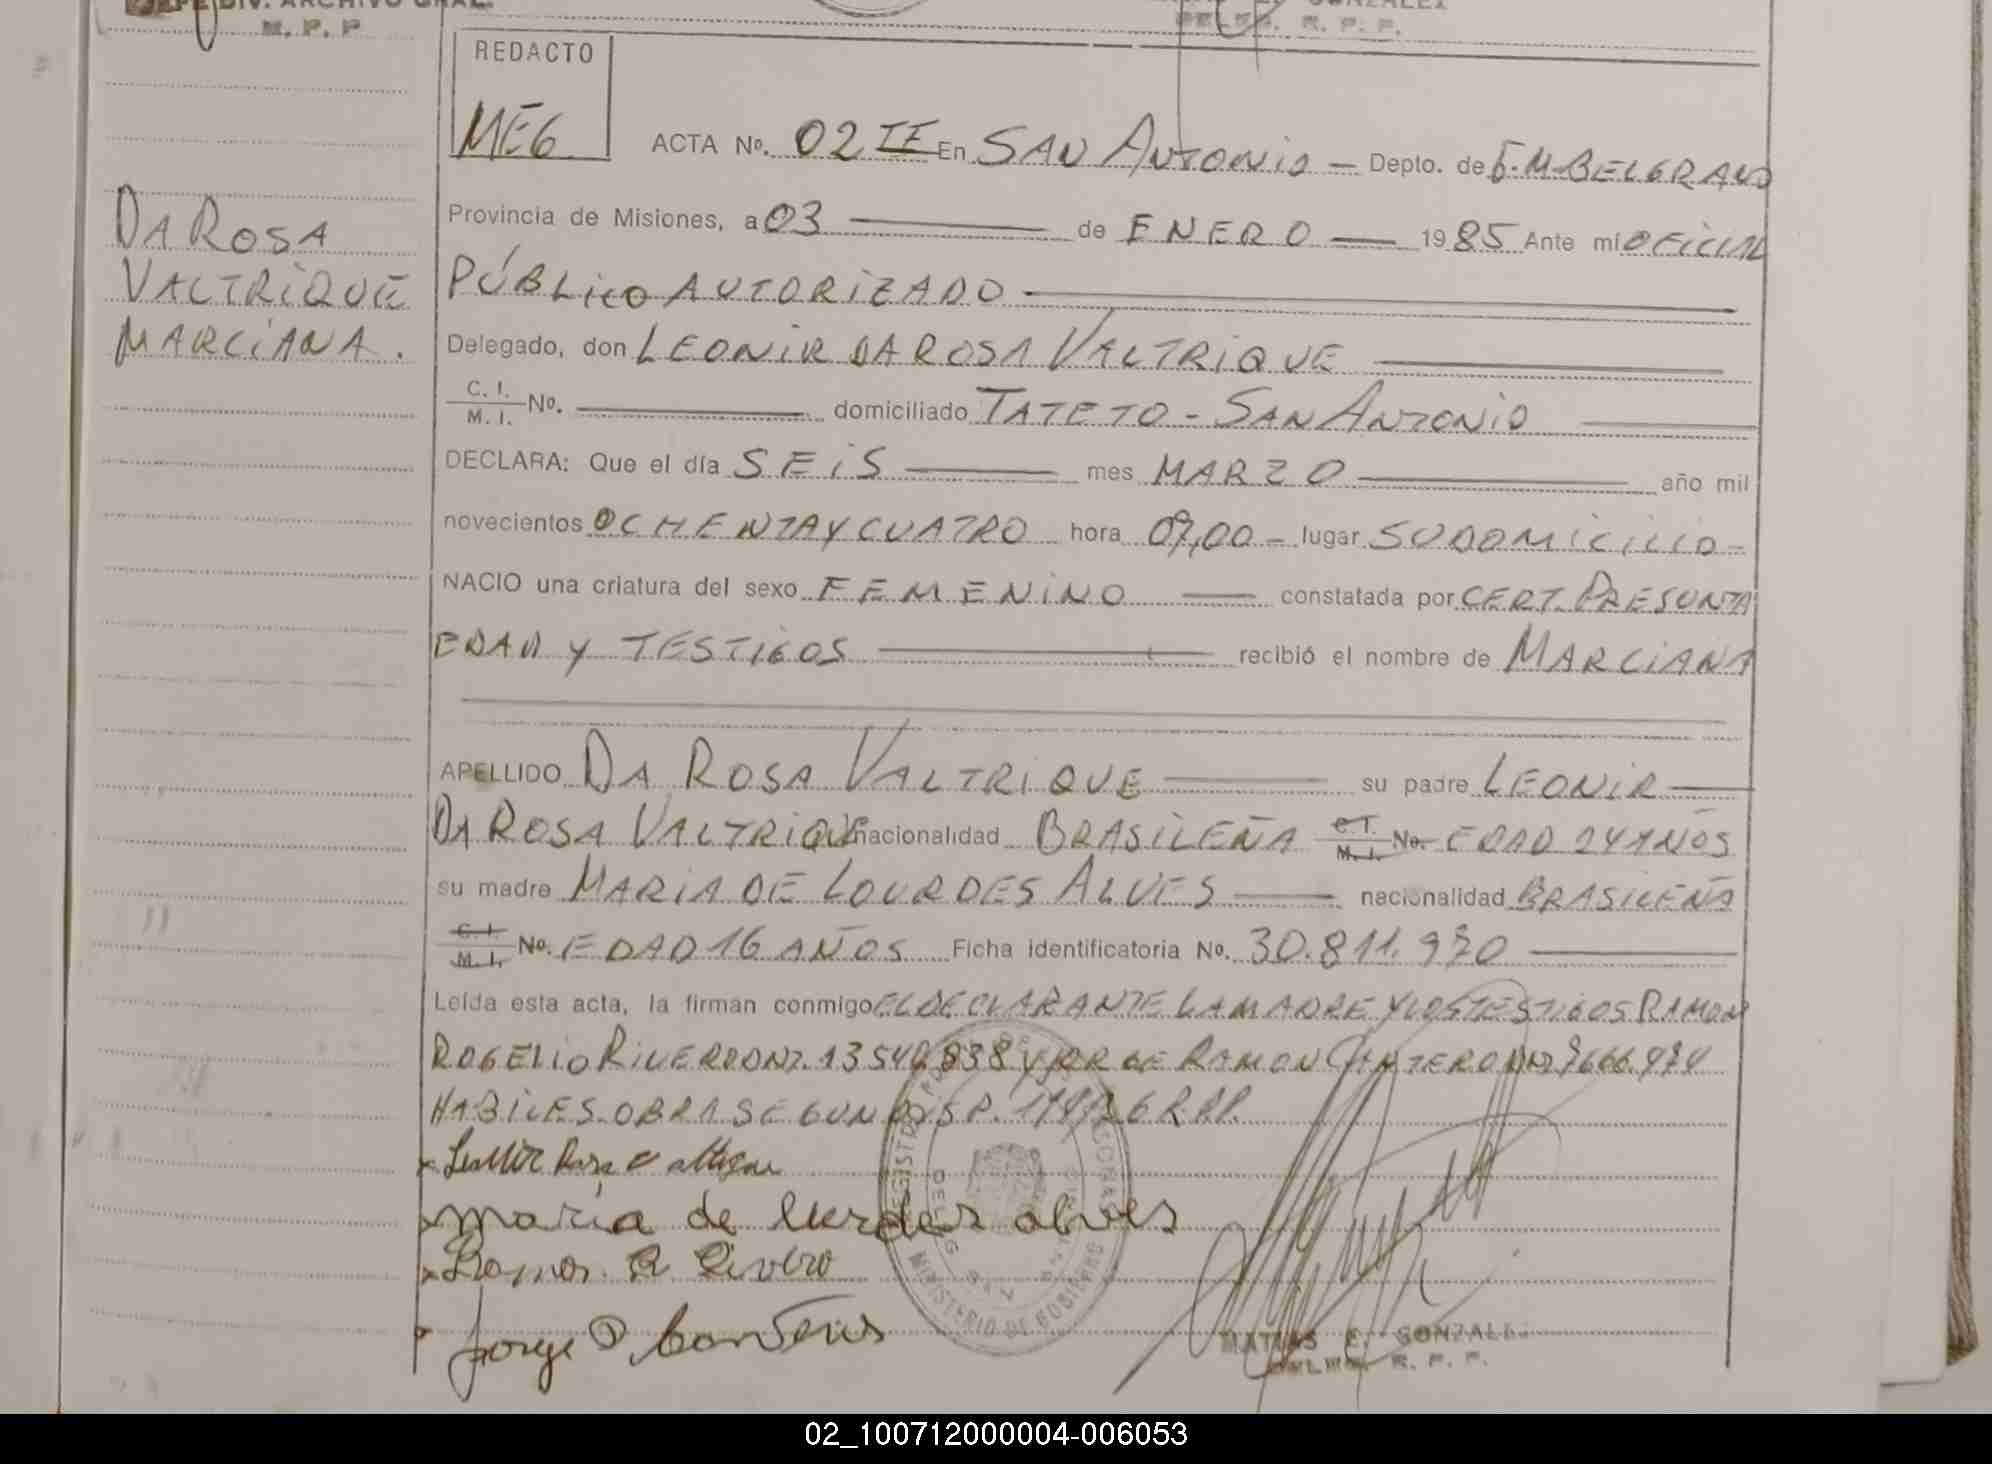 DIV. ARCHIVO GRAL.
M. P. P
GONZALEZ
R. P. P.
REDACTO
MEG
ACTA Nº. 02 TE En SAN ANTONIO — Depto. de G.M. BELGRANO
DA ROSA
VALTRIQUE
MARCIANA.
Provincia de Misiones, a 03 — de ENERO — 1985 Ante mi OFICIAL
PÚBLICO AUTORIZADO —
Delegado, don LEONIR DA ROSA VALTRIQUE —
C. I. / M. I. Nº. — domiciliado TATETO - SAN ANTONIO —
DECLARA: Que el día SEIS — mes MARZO — año mil
novecientos OCHENTA Y CUATRO hora 09,00 - lugar SU DOMICILIO -
NACIO una criatura del sexo FEMENINO — constatada por CERT. PRESUNTA
EDAD Y TESTIGOS — recibió el nombre de MARCIANA
APELLIDO DA ROSA VALTRIQUE — su padre LEONIR —
DA ROSA VALTRIQUE nacionalidad BRASILEÑA C. I. / M. I. No. EDAD 24 AÑOS
su madre MARIA DE LOURDES ALVES — nacionalidad BRASILEÑA
C. I. / M. I. Nº. EDAD 16 AÑOS Ficha identificatoria Nº. 30.811.970 —
Leída esta acta, la firman conmigo EL DECLARANTE LA MADRE Y LOS TESTIGOS RAMON
ROGELIO RIVERO DNI. 13540838 Y JORGE RAMON CANTERO DNI 7666.974
HABILES. OBRA SEGUN DISP. R.P.P.
maria de lurdes alves
Ramon R Rivero
Jorge R. Canteros
MINISTERIO DE GOBIERNO
MATIAS E. GONZALEZ
R. P. P.
02_100712000004-006053